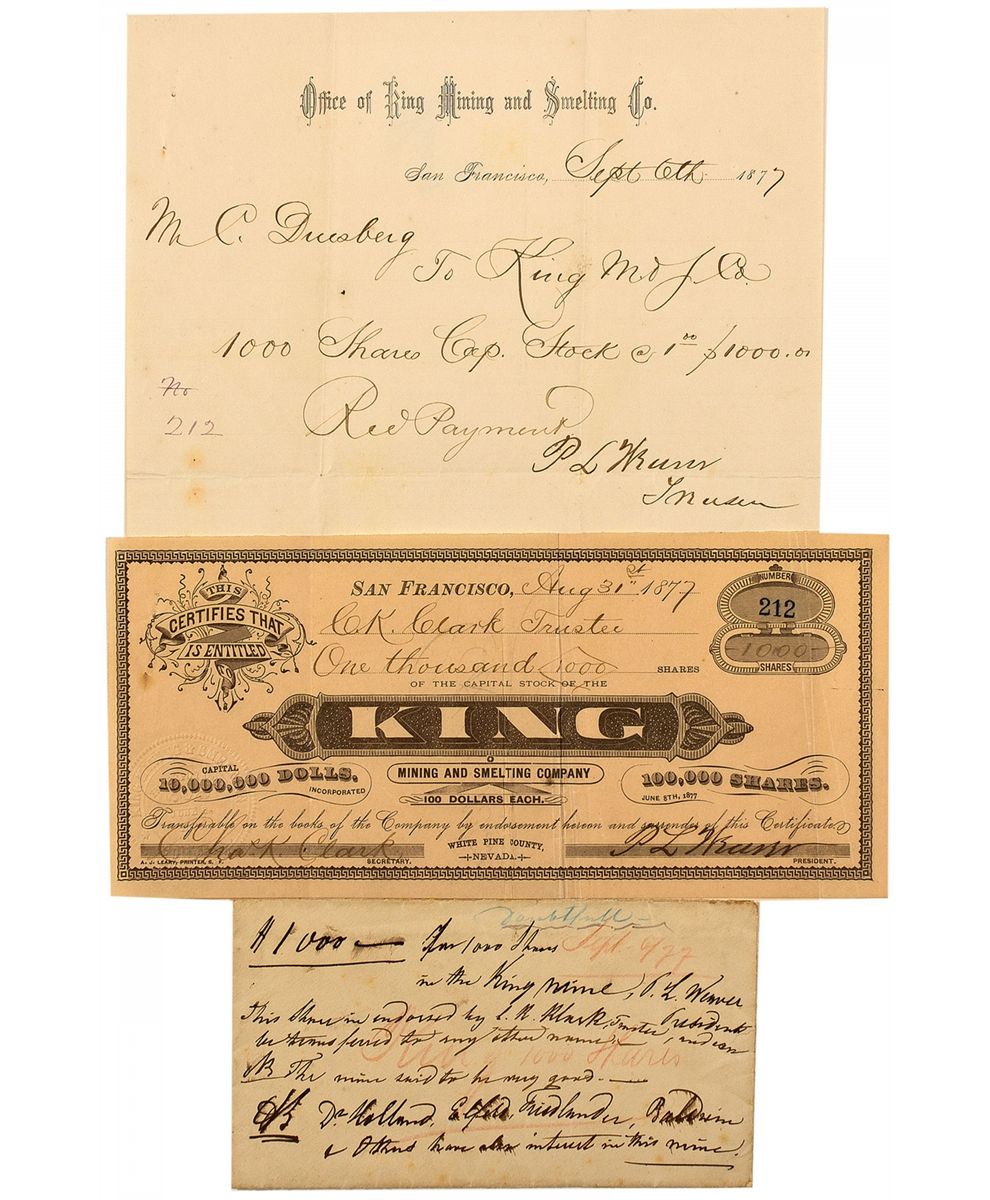 Office of King Mining and Smelting Co.
San Francisco, Sept 6th 1877
M C. Duesberg
To King M. & S. Co.
1000 Shares Cap. Stock @ 1.00 $1000.00
No
212
Recd Payment
P L Weaver
Treasurer
THIS
CERTIFIES THAT
IS ENTITLED
TO
SAN FRANCISCO, Aug 31st 1877
NUMBER
212
C.K. Clark Trustee
One thousand 1000 SHARES
1000
SHARES
OF THE CAPITAL STOCK OF THE
KING
CAPITAL
10,000,000 DOLLS.
INCORPORATED
MINING AND SMELTING COMPANY
100 DOLLARS EACH.
100,000 SHARES.
JUNE 8TH, 1877
Transferable on the books of the Company by endorsement hereon and surrender of this Certificate
Chas K Clark
SECRETARY.
WHITE PINE COUNTY,
NEVADA.
P L Weaver
PRESIDENT.
A. J. LEARY, PRINTER, S. F.
Doubtfull
$1000 — For 1000 Shares
Sept. 6/77
in the King mine, P. L. Weaver
This Share is endorsed by C. K. Klark, Trustee, President
be transferred to any other name, and can
King 1000 Shares
NB The mine said to be very good.
NB Dr Holland, Elfelt, Friedlander, Baldwin
& Others have also interest in this mine.